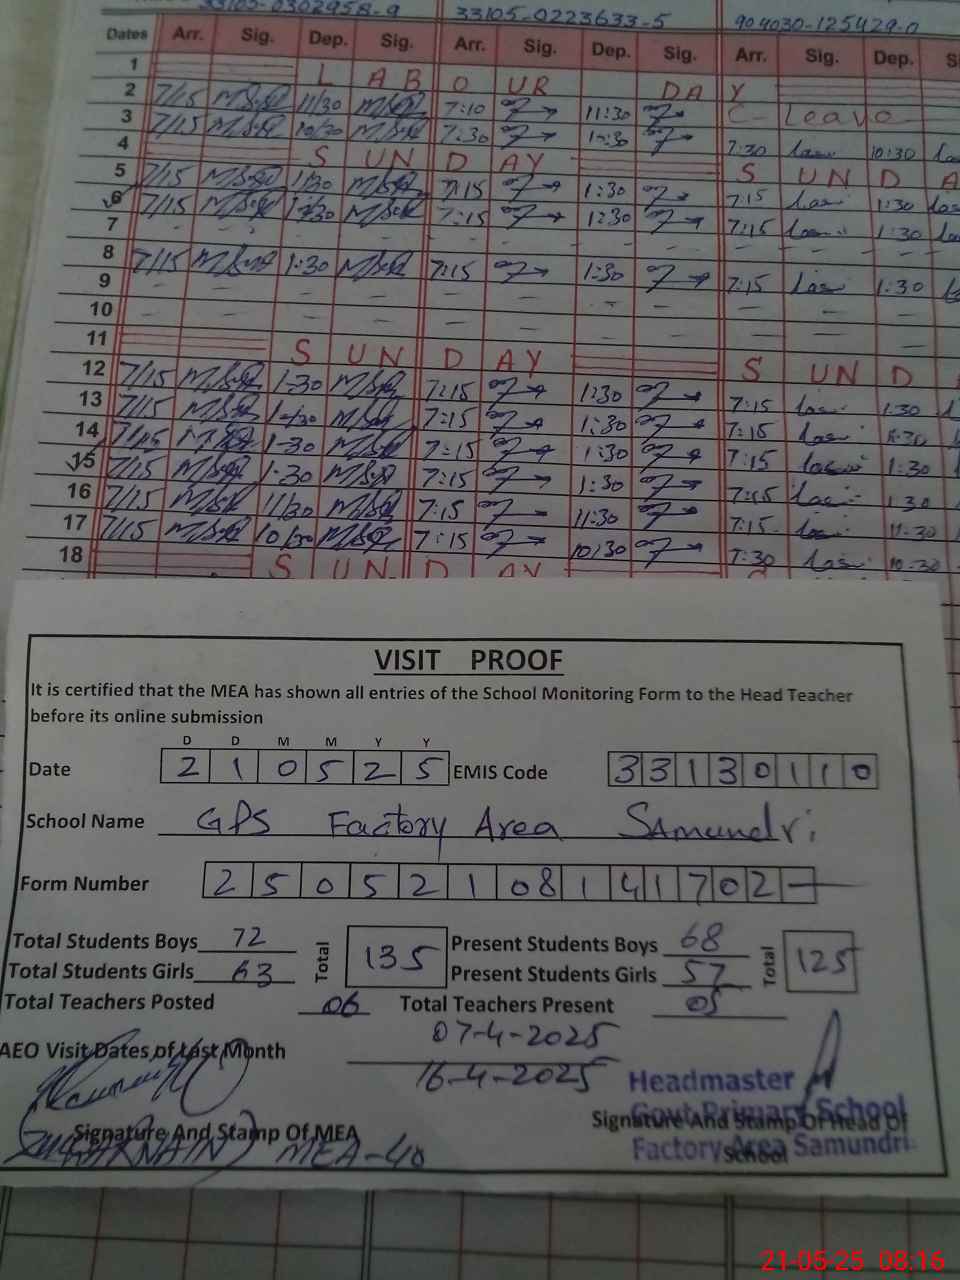 33105-0302958-9 33105-0223633-5 904030-125429-0
Dates Arr. Sig. Dep. Sig. Arr. Sig. Dep. Sig. Arr. Sig. Dep.
1 L A B O UR DA Y
2 7/15 11/30 7:10 11:30 C- Leave
3 7/15 10/30 7:30 10:30 7:30 10:30
4 S UN D AY S UN D A
5 7/15 1/30 7:15 1:30 7:15 1:30
6 7/15 1/30 7:15 1:30 7:15 1:30
7 - - - -
8 7/15 1:30 7:15 1:30 7:15 1:30
9 - - - -
10 - - - -
11 S UN D AY S UN D
12 7/15 1-30 7:15 1:30 7:15 1:30
13 7/15 1-30 7:15 1:30 7:15 1:30
14 7/15 1-30 7:15 1:30 7:15 1:30
15 7/15 1-30 7:15 1:30 7:15 1:30
16 7/15 11/30 7:15 11:30 7:15 11:30
17 7/15 10/30 7:15 10:30 7:30 10:30
18 S UN D AY
VISIT PROOF
It is certified that the MEA has shown all entries of the School Monitoring Form to the Head Teacher
before its online submission
D D M M Y Y
Date 2 1 0 5 2 5 EMIS Code 3 3 1 3 0 1 1 0
School Name GPS Factory Area Samundri
Form Number 2 5 0 5 2 1 08 1 4 1 7 0 2 -
Total Students Boys 72 Total 135 Present Students Boys 68 Total 125
Total Students Girls 63 Present Students Girls 57
Total Teachers Posted 06 Total Teachers Present 05
AEO Visit Dates of Last Month 07-4-2025
16-4-2025
Headmaster
Govt Primary School
Factory Area Samundri
Signature And Stamp Of MEA Signature And Stamp Of Head Of
School
MEA-40
21-05-25 08:16